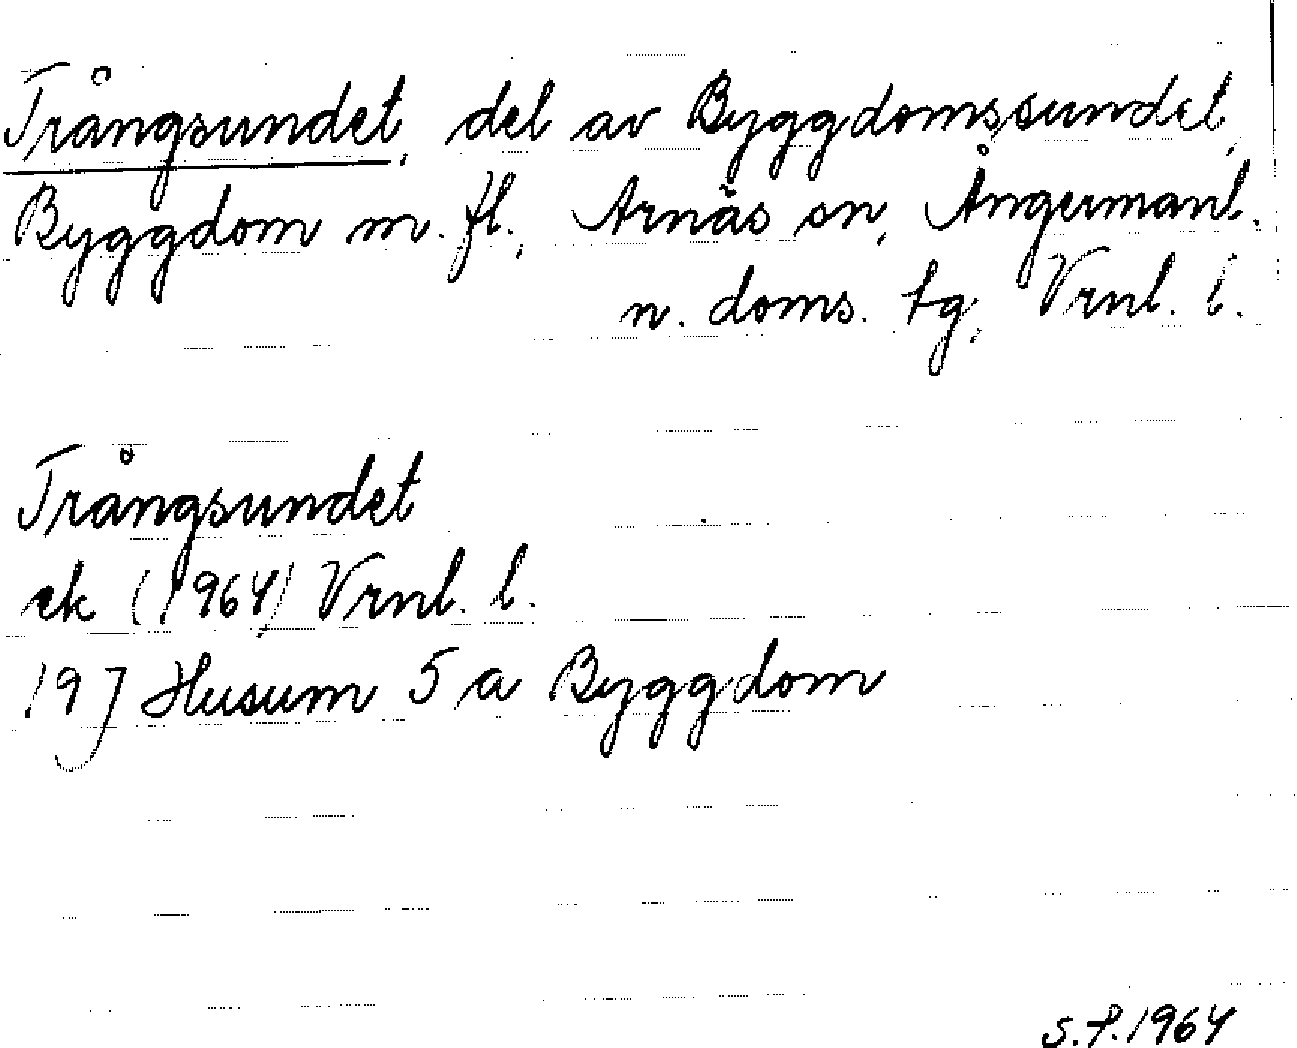 Trångsundet, del av Byggdomssundet,
Byggdom m. fl., Arnäs sn, Ångermanl.
n. doms. tg, Vrnl. l.
Trångsundet
ek (1964) Vrnl. l.
19J Husum 5 a Byggdom
S.P.1964